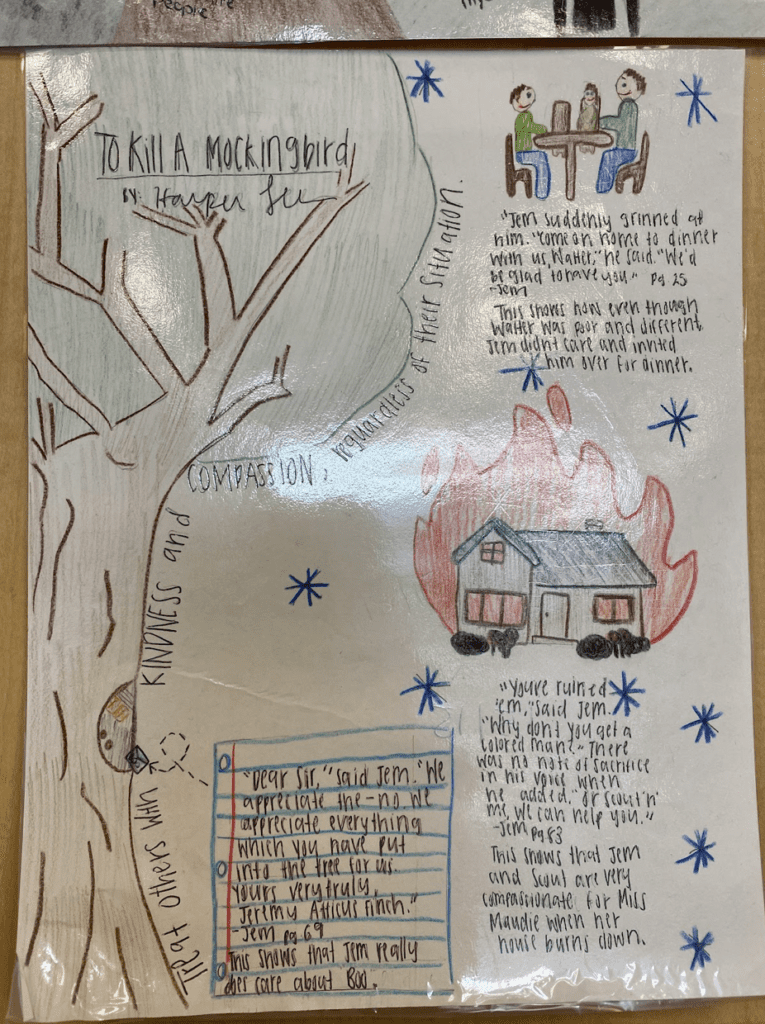 People
To Kill A Mockingbird
BY: Harper Lee
Treat others with KINDNESS and COMPASSION, reguardless of their situation.
"Jem suddenly grinned at
him. "Come on home to dinner
with us, Walter," he said. "We'd
be glad to have you." Pg 25
-Jem
This shows how even though
Walter was poor and different,
Jem didnt care and invited
him over for dinner.
"Youre ruined
'em," said Jem.
"Why dont you get a
colored man?" There
was no note of sacrifice
in his voice when
he added, "Or Scout'n'
me, we can help you."
-Jem pg 83
This shows that Jem
and Scout are very
compassionate for Miss
Maudie when her
house burns down.
"Dear Sir," said Jem. "We
appreciate the-no we
appreciate everything
which you have put
into the tree for us.
Yours very truly,
Jeremy Atticus Finch."
-Jem pg 69
This shows that Jem really
does care about Boo.